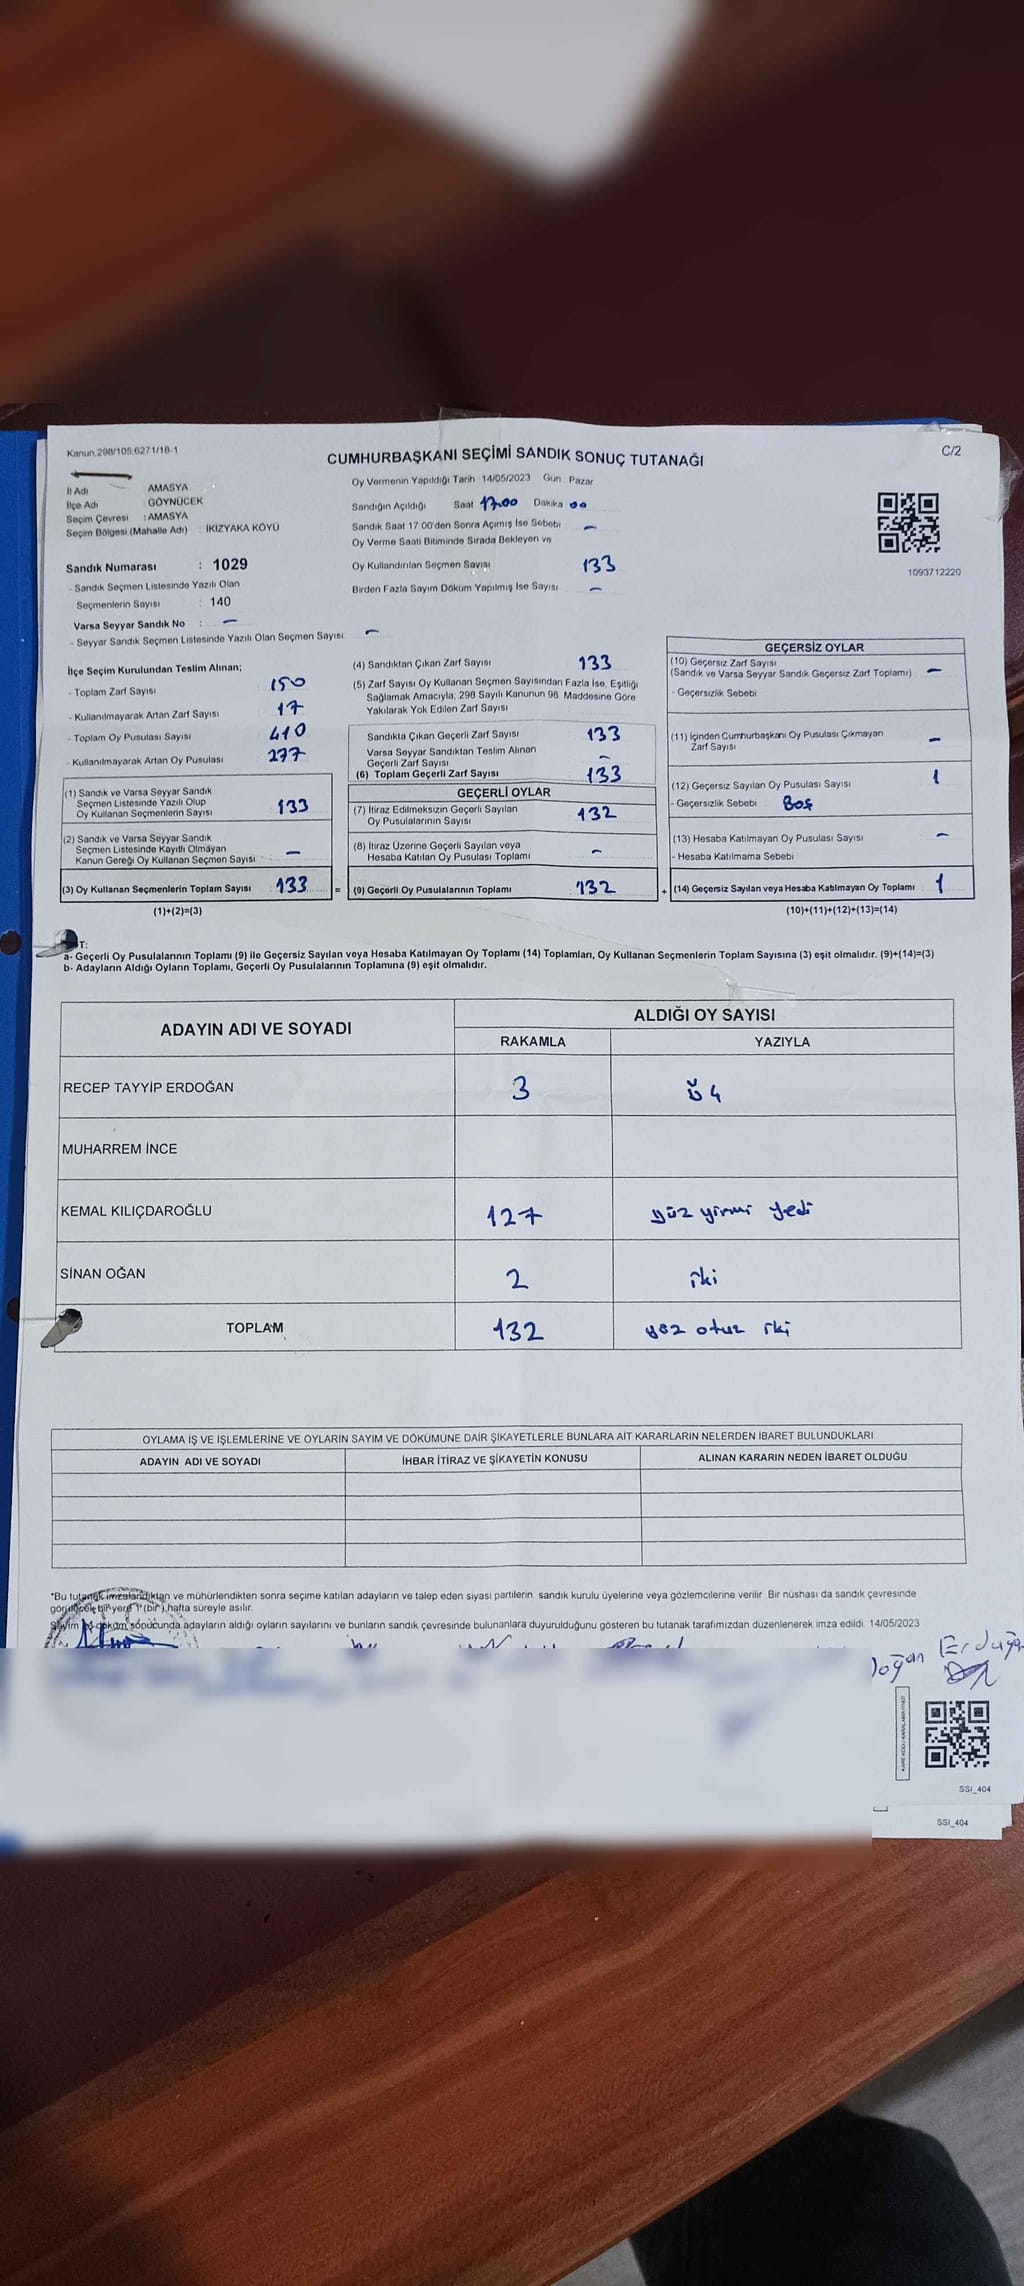 Kanun.298/105,6271/18-1
CUMHURBAŞKANI SEÇİMİ SANDIK SONUÇ TUTANAĞI
C/2
İl Adı AMASYA
İlçe Adı GÖYNÜCEK
Seçim Çevresi : AMASYA
Seçim Bölgesi (Mahalle Adı) : İKİZYAKA KÖYÜ
Oy Vermenin Yapıldığı Tarih : 14/05/2023 Gün Pazar
Sandığın Açıldığı Saat 17.00 Dakika 00
Sandık Saat 17 00'den Sonra Açımış İse Sebebi –
Oy Verme Saati Bitiminde Sırada Bekleyen ve
Oy Kullandırılan Seçmen Sayısı 133
Birden Fazla Sayım Döküm Yapılmış İse Sayısı –
1093712220
Sandık Numarası : 1029
- Sandık Seçmen Listesinde Yazılı Olan
Seçmenlerin Sayısı : 140
Varsa Seyyar Sandık No : –
- Seyyar Sandık Seçmen Listesinde Yazılı Olan Seçmen Sayısı: –
İlçe Seçim Kurulundan Teslim Alınan;
- Toplam Zarf Sayısı 150
- Kullanılmayarak Artan Zarf Sayısı 17
- Toplam Oy Pusulası Sayısı 410
- Kullanılmayarak Artan Oy Pusulası 277
(1) Sandık ve Varsa Seyyar Sandık
Seçmen Listesinde Yazılı Olup
Oy Kullanan Seçmenlerin Sayısı 133
(2) Sandık ve Varsa Seyyar Sandık
Seçmen Listesinde Kayıtlı Olmayan
Kanun Gereği Oy Kullanan Seçmen Sayısı –
(3) Oy Kullanan Seçmenlerin Toplam Sayısı 133 =
(1)+(2)=(3)
(4) Sandıktan Çıkan Zarf Sayısı 133
(5) Zarf Sayısı Oy Kullanan Seçmen Sayısından Fazla İse, Eşitliği
Sağlamak Amacıyla, 298 Sayılı Kanunun 98. Maddesine Göre
Yakılarak Yok Edilen Zarf Sayısı
Sandıkta Çıkan Geçerli Zarf Sayısı 133
Varsa Seyyar Sandıktan Teslim Alınan
Geçerli Zarf Sayısı –
(6) Toplam Geçerli Zarf Sayısı 133
GEÇERLİ OYLAR
(7) İtiraz Edilmeksizin Geçerli Sayılan
Oy Pusulalarının Sayısı 132
(8) İtiraz Üzerine Geçerli Sayılan veya
Hesaba Katılan Oy Pusulası Toplamı –
(9) Geçerli Oy Pusulalarının Toplamı 132 +
GEÇERSİZ OYLAR
(10) Geçersiz Zarf Sayısı
(Sandık ve Varsa Seyyar Sandık Geçersiz Zarf Toplamı) –
- Geçersizlik Sebebi
(11) İçinden Cumhurbaşkanı Oy Pusulası Çıkmayan
Zarf Sayısı –
(12) Geçersiz Sayılan Oy Pusulası Sayısı 1
- Geçersizlik Sebebi Boş
(13) Hesaba Katılmayan Oy Pusulası Sayısı –
- Hesaba Katılmama Sebebi
(14) Geçersiz Sayılan veya Hesaba Katılmayan Oy Toplamı 1
(10)+(11)+(12)+(13)=(14)
T:
a- Geçerli Oy Pusulalarının Toplamı (9) ile Geçersiz Sayılan veya Hesaba Katılmayan Oy Toplamı (14) Toplamları, Oy Kullanan Seçmenlerin Toplam Sayısına (3) eşit olmalıdır. (9)+(14)=(3)
b- Adayların Aldığı Oyların Toplamı, Geçerli Oy Pusulalarının Toplamına (9) eşit olmalıdır.
ADAYIN ADI VE SOYADI
ALDIĞI OY SAYISI
RAKAMLA YAZIYLA
RECEP TAYYİP ERDOĞAN 3 üç
MUHARREM İNCE
KEMAL KILIÇDAROĞLU 127 yüz yirmi yedi
SİNAN OĞAN 2 iki
TOPLAM 132 yüz otuz iki
OYLAMA İŞ VE İŞLEMLERİNE VE OYLARIN SAYIM VE DÖKÜMÜNE DAİR ŞİKAYETLERLE BUNLARA AİT KARARLARIN NELERDEN İBARET BULUNDUKLARI
ADAYIN ADI VE SOYADI İHBAR İTİRAZ VE ŞİKAYETİN KONUSU ALINAN KARARIN NEDEN İBARET OLDUĞU
*Bu tutanak imzalandıktan ve mühürlendikten sonra seçime katılan adayların ve talep eden siyasi partilerin sandık kurulu üyelerine veya gözlemcilerine verilir. Bir nüshası da sandık çevresinde
görülecek bir yere 1 (bir) hafta süreyle asılır.
Sayım ve döküm sonucunda adayların aldığı oyların sayılarını ve bunların sandık çevresinde bulunanlara duyurulduğunu gösteren bu tutanak tarafımızdan düzenlenerek imza edildi. 14/05/2023
SSI_404
SSI_404